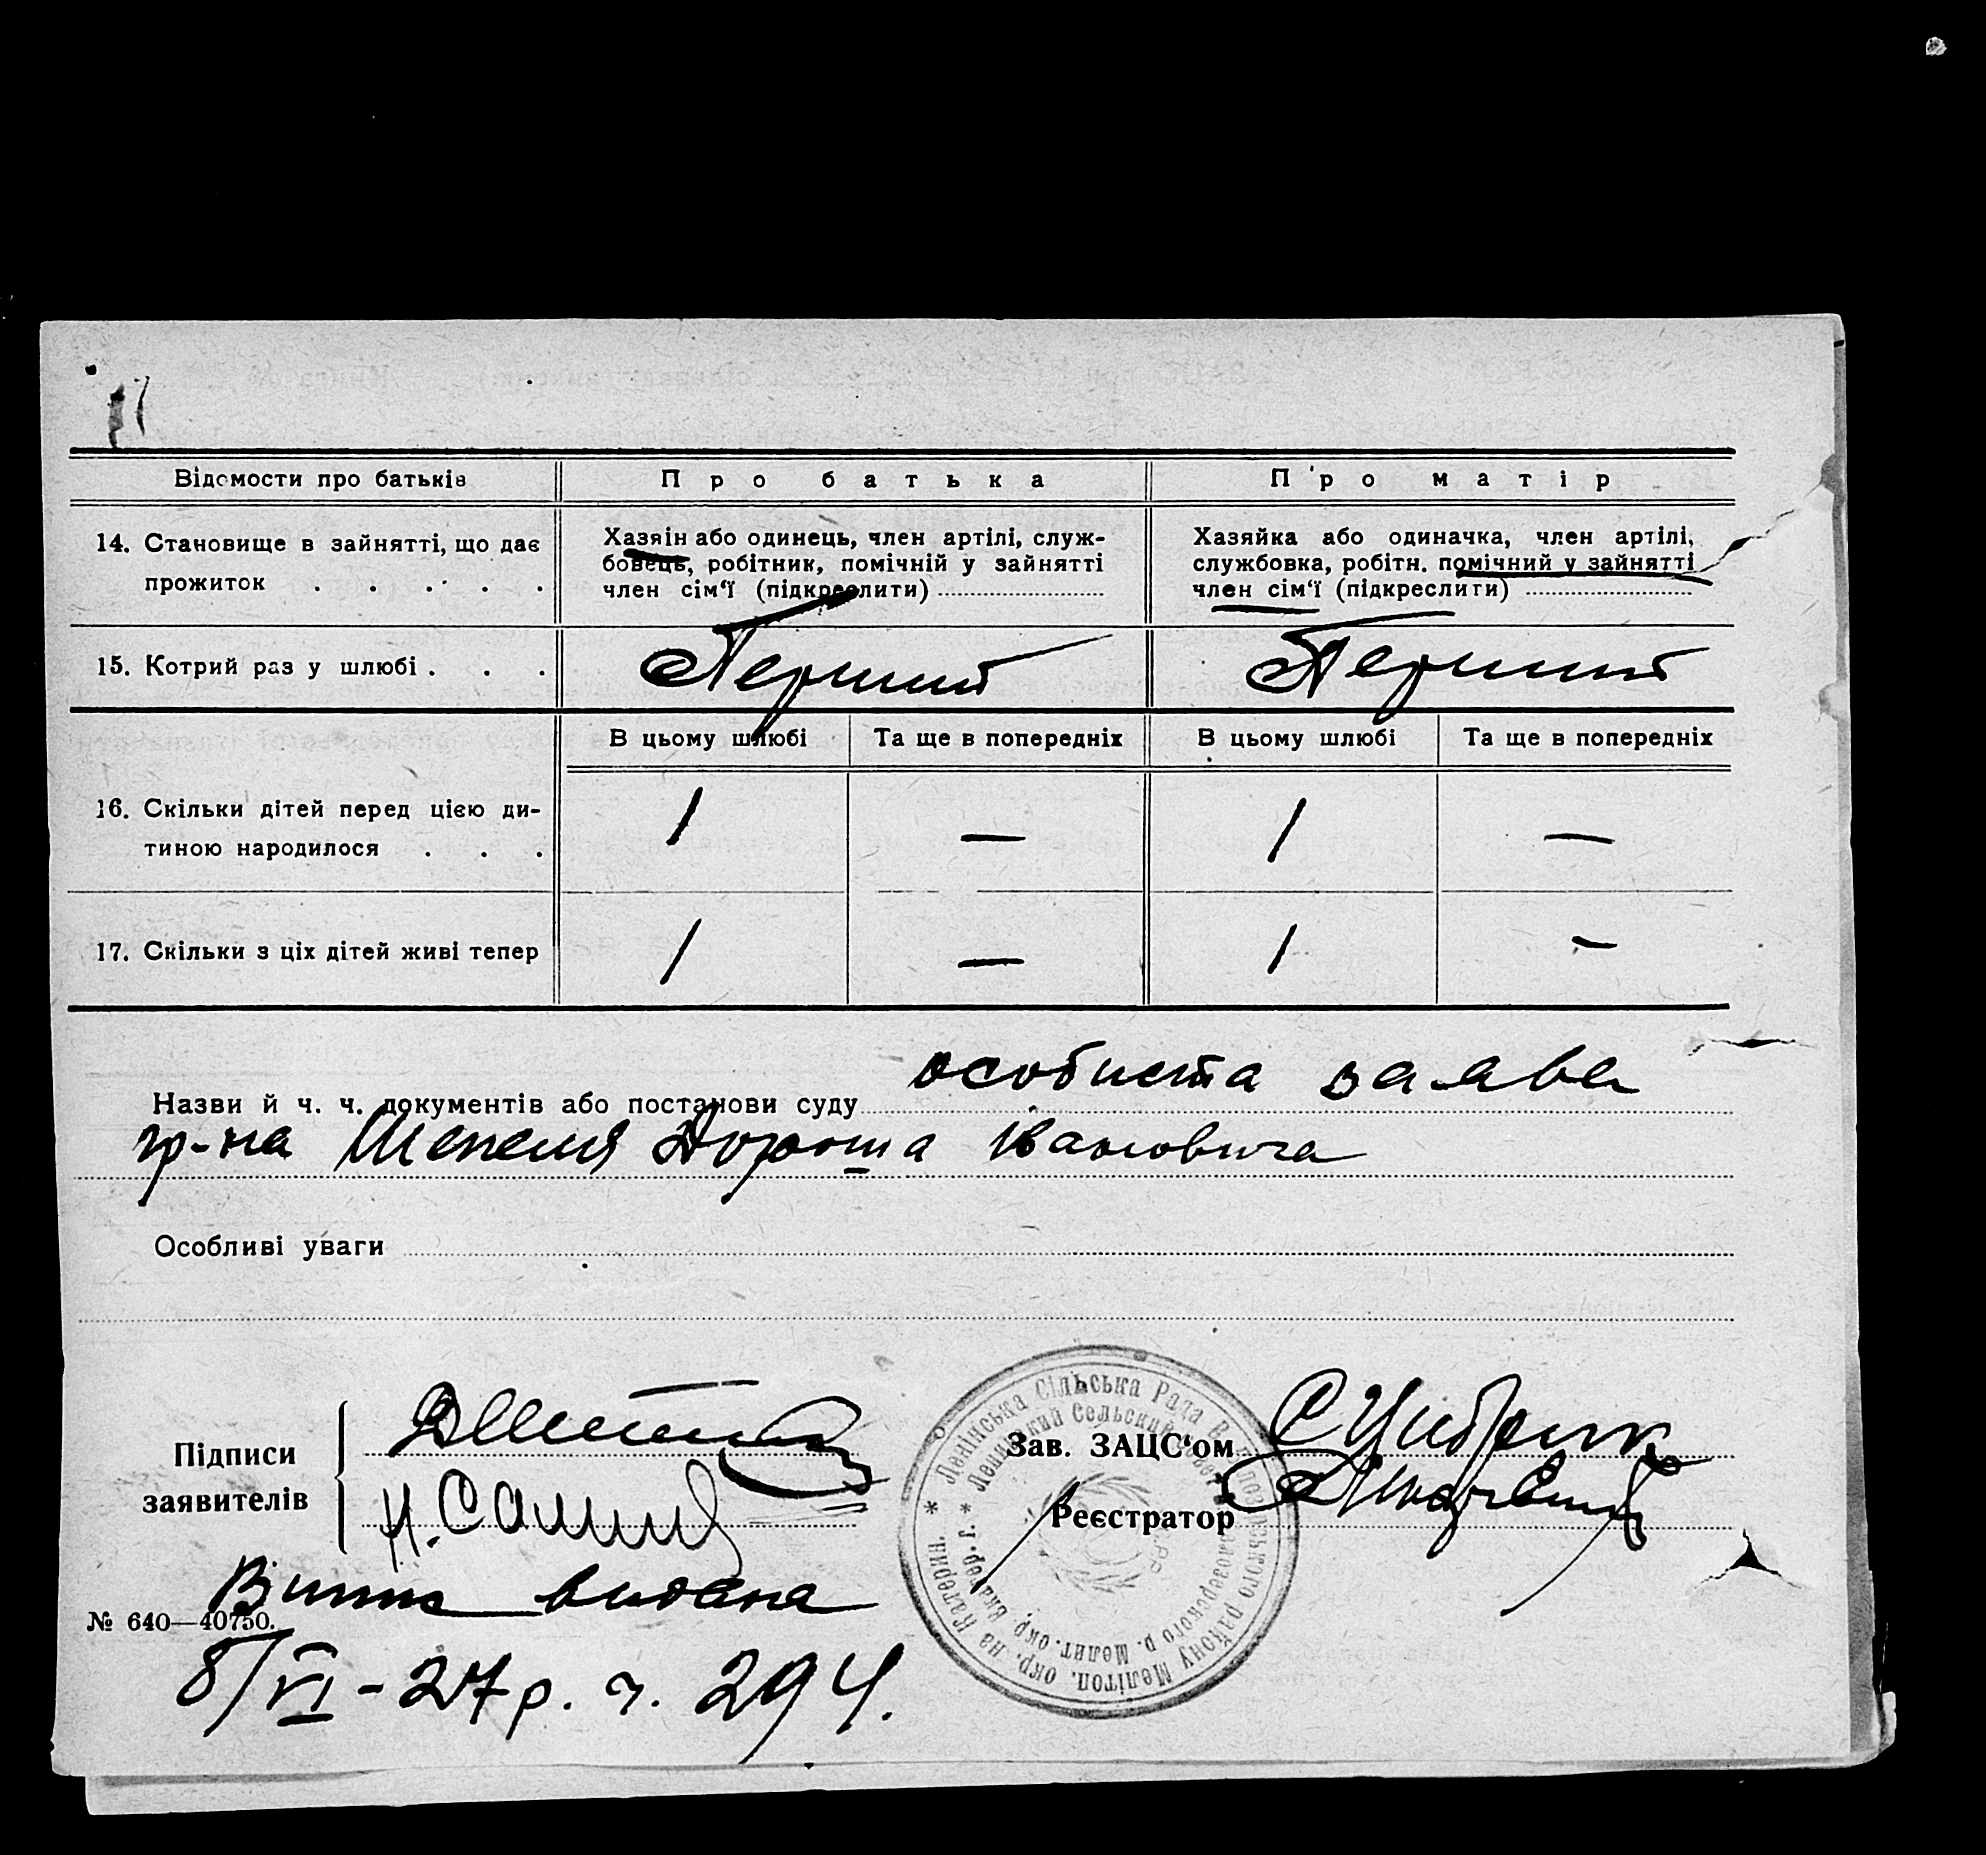 Відомости про батьків
Про батька
Про матір
14. Становище в зайнятті, що дає
прожиток . . . . .
Хазяїн або одинець, член артілі, служ-
бовець, робітник, помічній у зайнятті
член сім'ї (підкреслити)
Хазяйка або одиначка, член артілі,
службовка, робітн. помічний у зайнятті
член сім'ї (підкреслити)
15. Котрий раз у шлюбі . . .
Перший
Перший
В цьому шлюбі
Та ще в попередніх
В цьому шлюбі
Та ще в попередніх
16. Скільки дітей перед цією ди-
тиною народилося . . .
1 — 1 —
17. Скільки з ціх дітей живі тепер
1 — 1 —
Назви й ч. ч. документів або постанови суду особиста заява
гр-на Шепеля Дороша Івановича
Особливі уваги
Підписи
заявителів
Зав. ЗАЦС'ом
Реєстратор
Ленінська Сільська Рада
району Мелітоп. окр. на Катерин.
Ленинский Сельский
Мелит. окр. Екатер. г.
видана
№ 640—40750.
8/VI - 27 р. ч. 294.